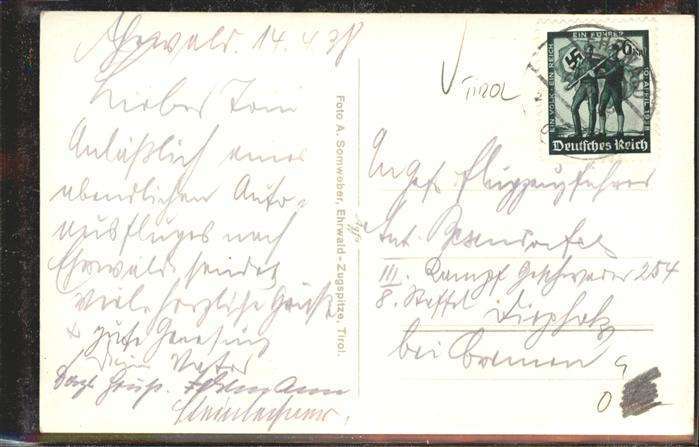 Ehrwald. 14.4.38
Liebes Toni
Anläßlich eines
abendlichen Auto=
ausfluges nach
Ehrwald sendet
viele herzliche Grüße
& gute Genesung
Dein Vater
Foto A. Somwober, Ehrwald-Zugspitze, Tirol.
TIROL
EIN VOLK EIN REICH
EIN FÜHRER
10. APRIL 1938
Deutsches Reich
An
Gefr. Flugzeugführer
Ant.
III. Kampf Geschwader 254
8. Staffel Diepholz
bei Bremen